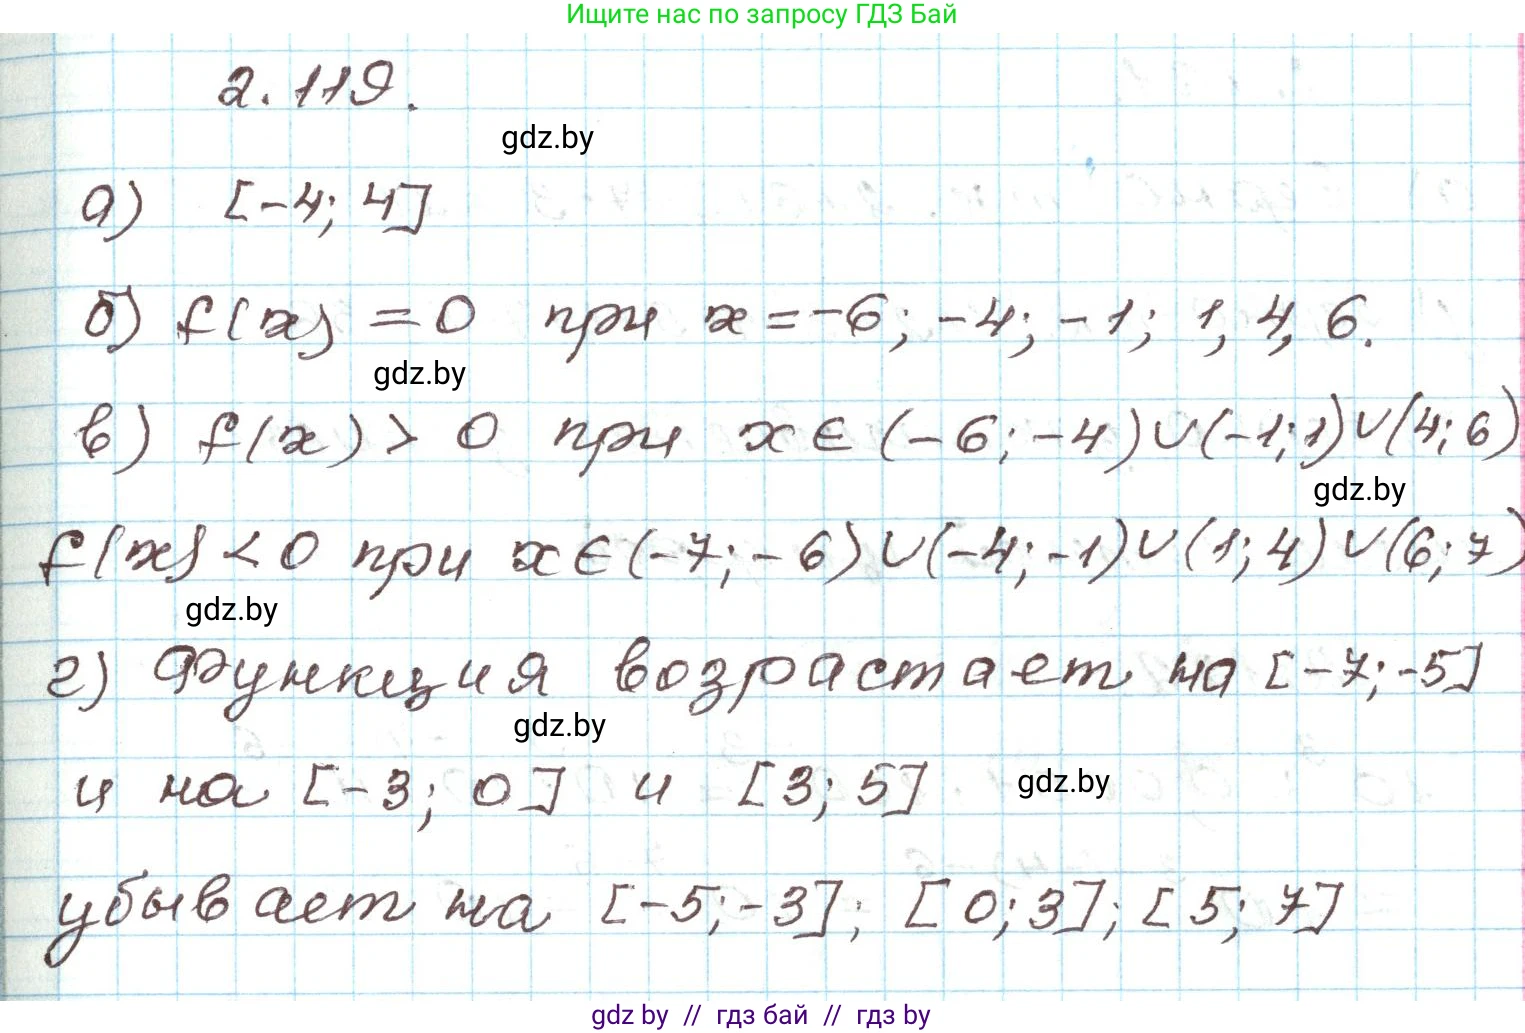 Ищите нас по запросу ГДЗ Бай
2.119.
gdz.by
а) [-4; 4]
б) f(x) = 0 при x = -6; -4; -1; 1, 4, 6.
gdz.by
в) f(x) > 0 при x ∈ (-6; -4) ∪ (-1; 1) ∪ (4; 6)
gdz.by
f(x) < 0 при x ∈ (-7; -6) ∪ (-4; -1) ∪ (1; 4) ∪ (6; 7)
gdz.by
г) Функция возрастает на [-7; -5]
gdz.by
и на [-3; 0] и [3; 5]
gdz.by
убывает на [-5; -3]; [0; 3]; [5; 7]
gdz by // гдз бай // гдз by